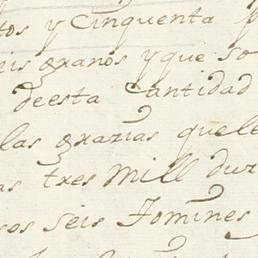 tos y Cinquenta
eis granos y que so
de esta Cantidad
las grazias que le
as tres Mill du
sos seis Tomines